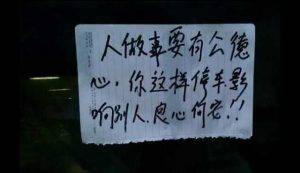 人做事要有公德
心，你这样停车影
响别人，良心何安！！